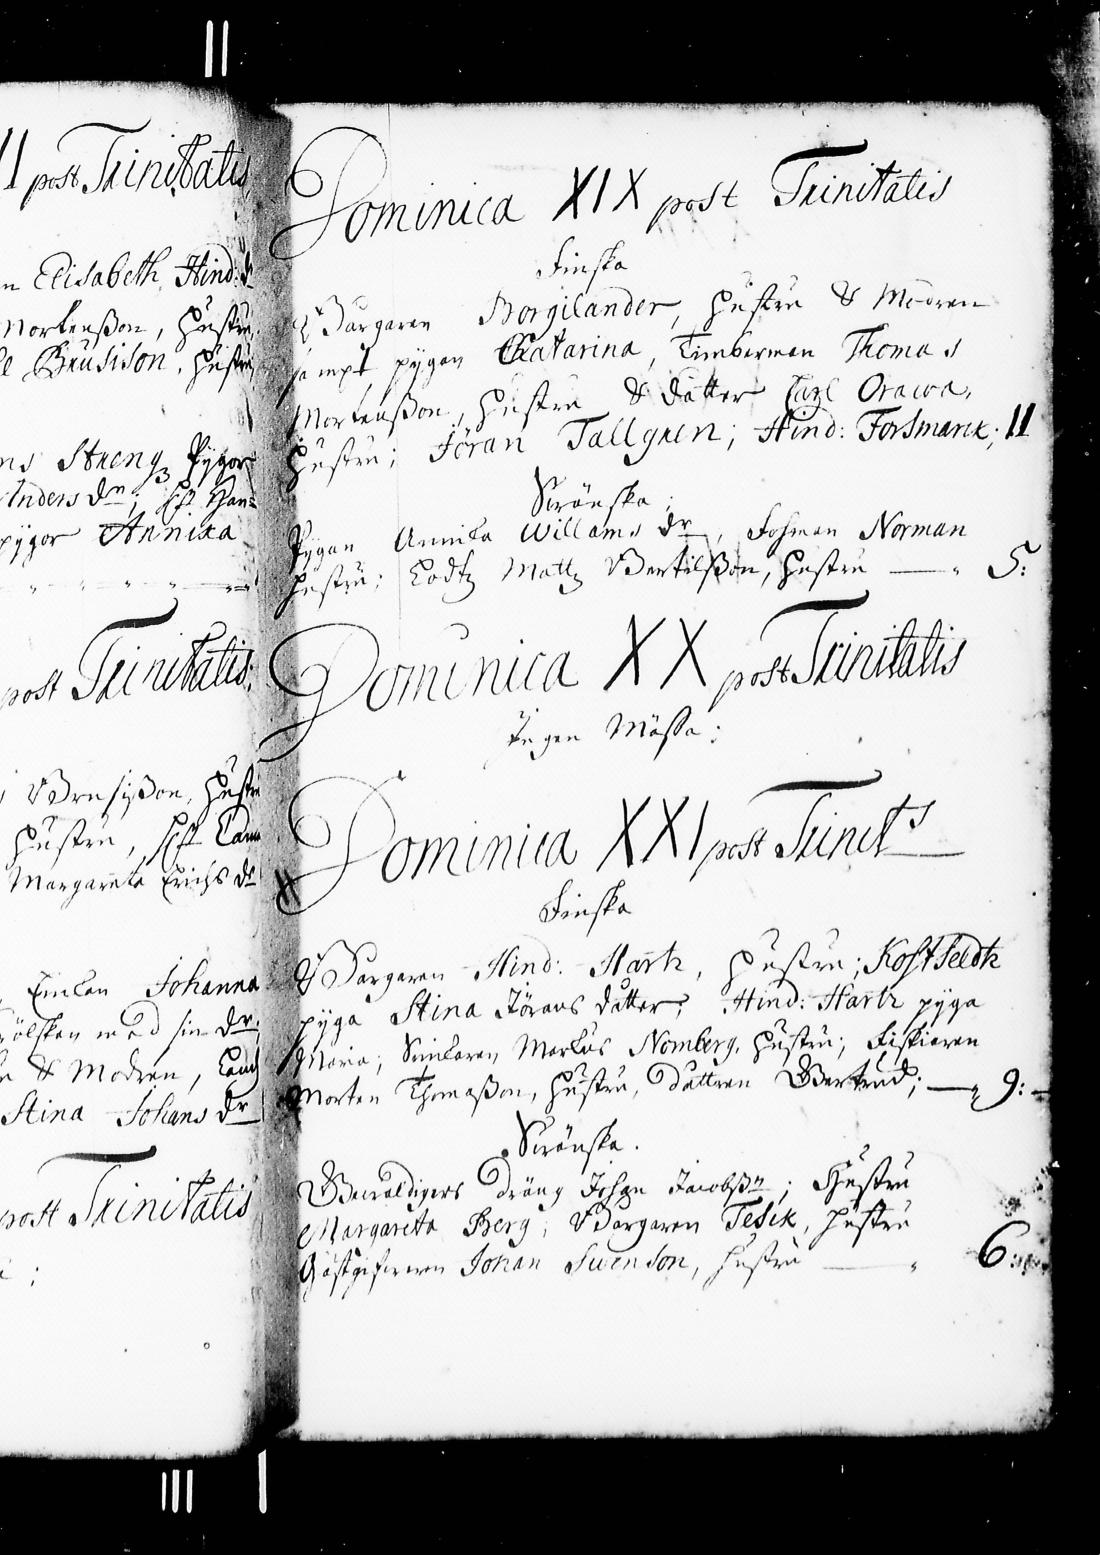 II post Trinitatis
n Elisabeth, Hind: d
Mortenßon, Hustru,
Brusison, Hustru
ns Streng, Pygor
Anders dn;
pygor Annika
post Trinitatis:
Hustru
Hustru,
Margareta Erichs dr
Enkan Johanna
med sin dr.
& Modren,
Stina Johans dr
post Trinitatis
Dominica XIX post Trinitatis
Finska
Borgaren Borgilander, Hustru & Modren
sampt pygan Chatarina, Timberman Thomas
Mortenßon, Hustru & dåtter Carl Orawa,
Hustru; Jöran Tallgren; Hind: Forsmark; 11
Swänska;
Pygan Annika Willams dr, Johman Norman
Hustru; Lodtz Mattz Bertilßon, Hustru — 5:
Dominica XX post Trinitatis
Ingen Mässa;
Dominica XXI post Trinitts
Finska
Borgaren Hind: Hartz, Hustru; Kostfeldtz
pyga Stina Jörans dåtter; Hind: Hartz pyga
Maria; Markus Nomberg, Hustru; Fiskiaren
Morten Thomaßon, Hustru, dåttren Bertrud; — 9:
Swänska.
dräng Johan Jacobßn; Hustru
Margareta Berg; Borgaren Tesik, Hustru
Gästgifwaren Johan Swenson, Hustru — 6: